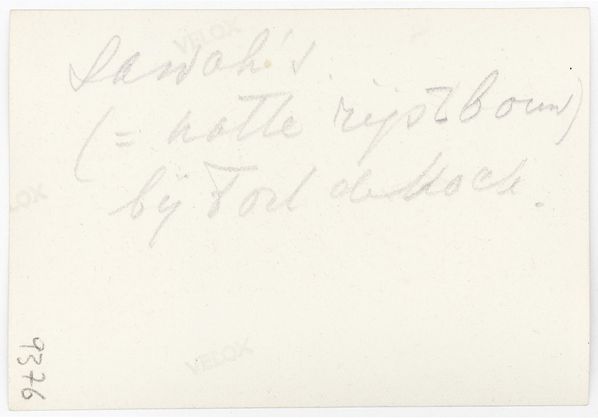 Sawah's
(= natte rijstbouw)
bij Fort de Kock.
9376
VELOX
VELOX
VELOX